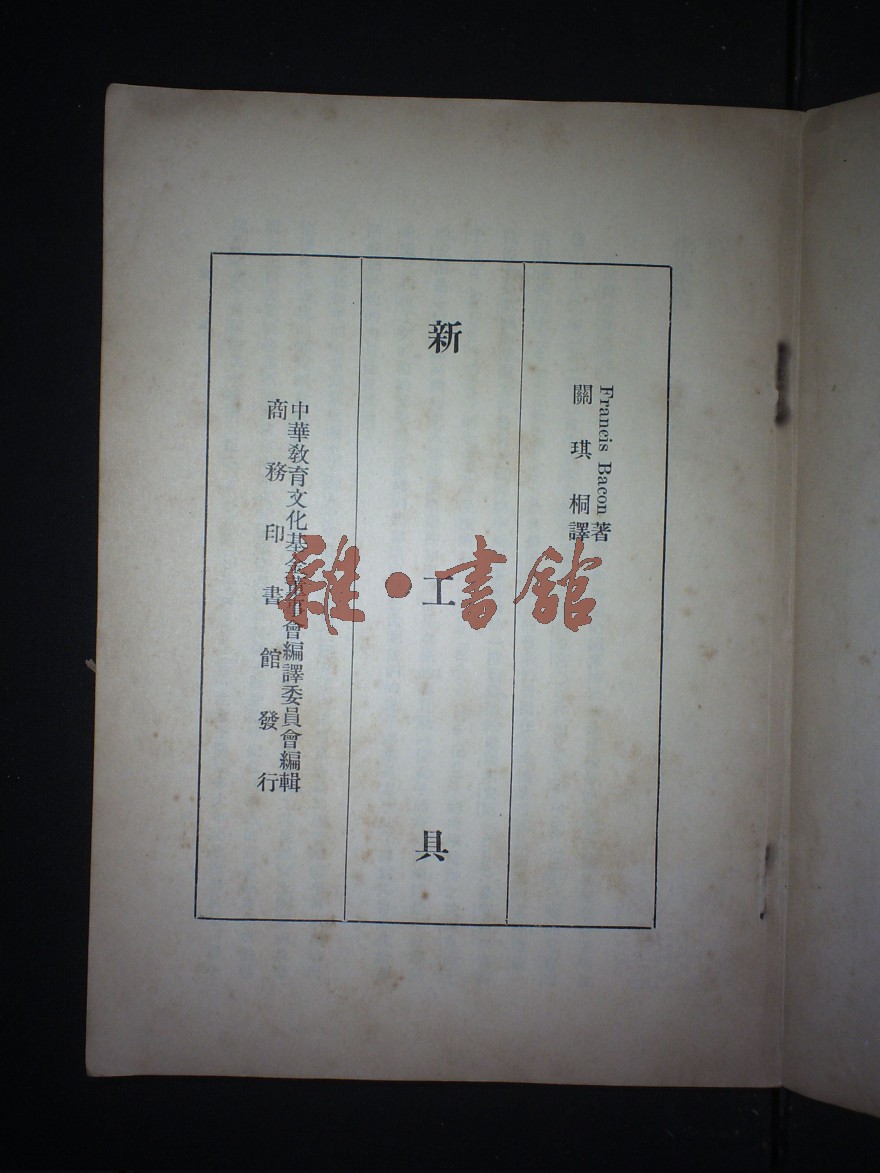 Francis Bacon 著
關琪桐譯
新工具
中華教育文化基金董事會編譯委員會編輯
商務印書館發行
雜·書館